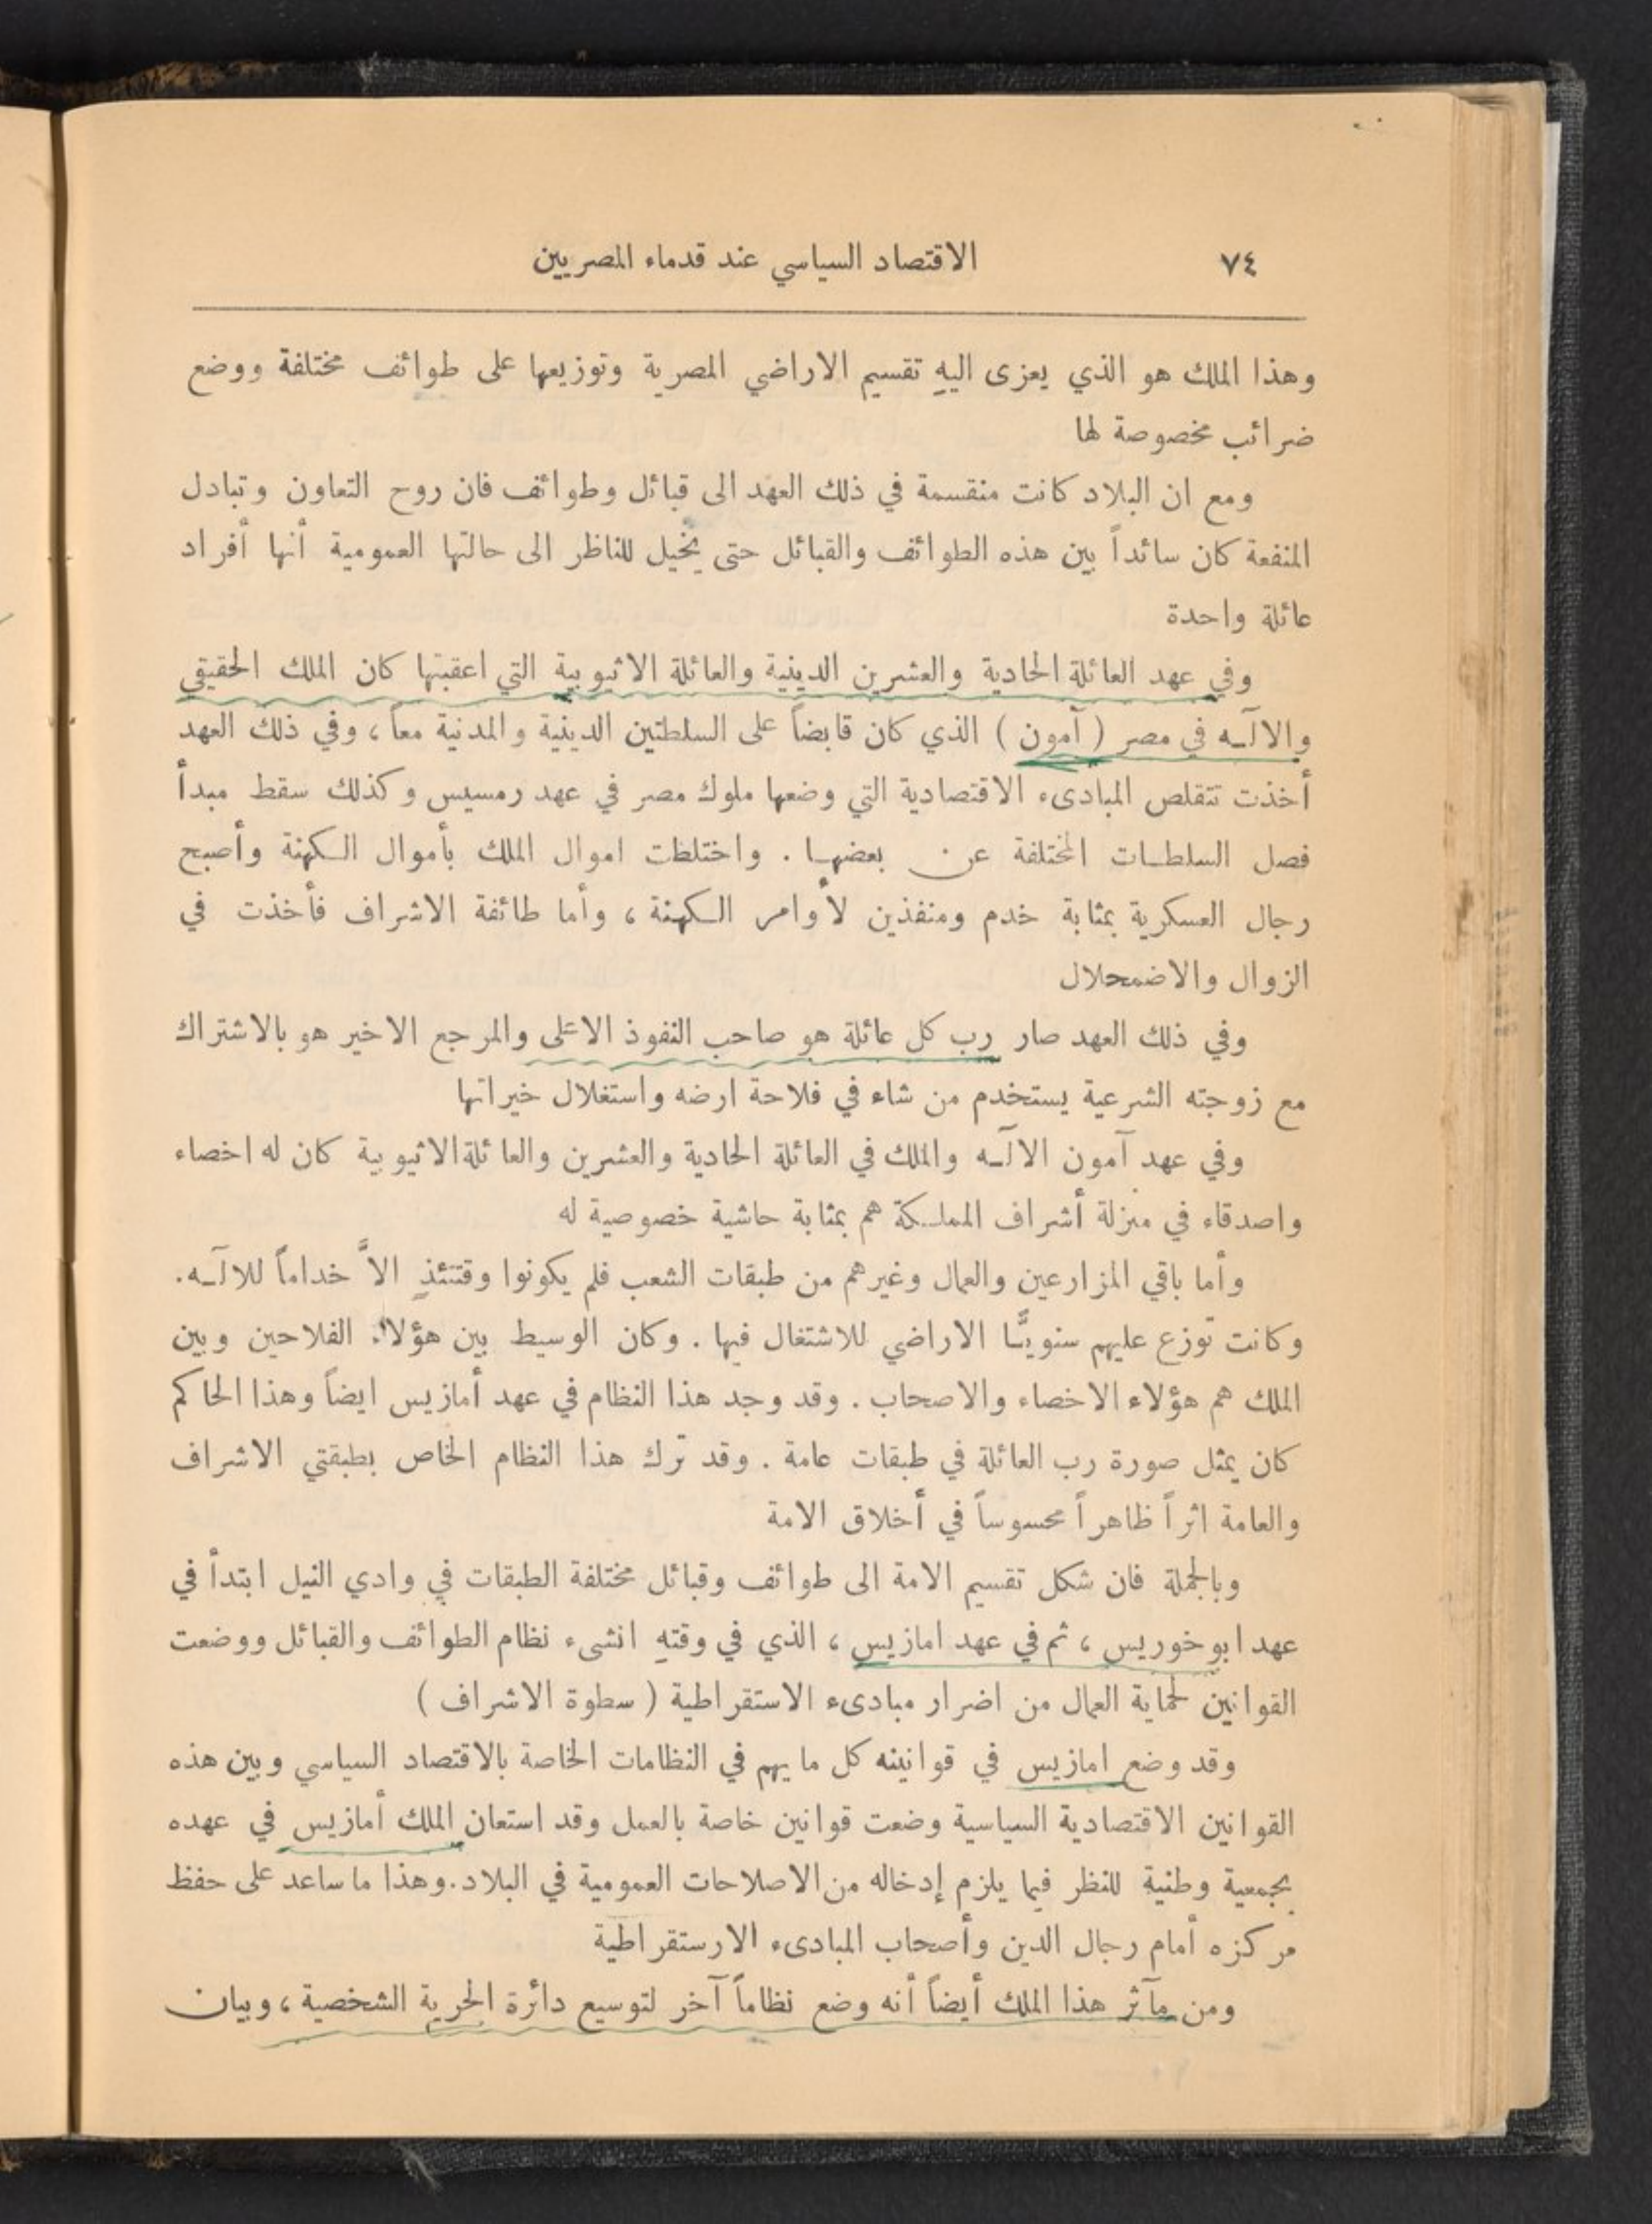 ٧٤ الاقتصاد السياسي عند قدماء المصريين
وهذا الملك هو الذي يعزى اليهِ تقسيم الاراضي المصرية وتوزيعها على طوائف مختلفة ووضع
ضرائب مخصوصة لها
ومع ان البلاد كانت منقسمة في ذلك العهد الى قبائل وطوائف فان روح التعاون وتبادل
المنفعة كان سائداً بين هذه الطوائف والقبائل حتى يخيل للناظر الى حالتها العمومية أنها أفراد
عائلة واحدة
وفي عهد العائلة الحادية والعشرين الدينية والعائلة الاثيوبية التي اعقبتها كان الملك الحقيقي
والالٓه في مصر ( آمون ) الذي كان قابضاً على السلطتين الدينية والمدنية معاً ، وفي ذلك العهد
أخذت تتقلص المبادىء الاقتصادية التي وضعها ملوك مصر في عهد رمسيس وكذلك سقط مبدأ
فصل السلطات المختلفة عن بعضها . واختلطت اموال الملك بأموال الكهنة وأصبح
رجال العسكرية بمثابة خدم ومنفذين لأوامر الكهنة ، وأما طائفة الاشراف فأخذت في
الزوال والاضمحلال
وفي ذلك العهد صار رب كل عائلة هو صاحب النفوذ الاعلى والمرجع الاخير هو بالاشتراك
مع زوجته الشرعية يستخدم من شاء في فلاحة ارضه واستغلال خيراتها
وفي عهد آمون الالٓه والملك في العائلة الحادية والعشرين والعائلة الاثيوبية كان له اخصاء
واصدقاء في منزلة أشراف المملكة هم بمثابة حاشية خصوصية له
وأما باقي المزارعين والعمال وغيرهم من طبقات الشعب فلم يكونوا وقتئذٍ الاَّ خداماً للالٓه.
وكانت توزع عليهم سنويًّا الاراضي للاشتغال فيها . وكان الوسيط بين هؤلاء الفلاحين وبين
الملك هم هؤلاء الاخصاء والاصحاب . وقد وجد هذا النظام في عهد أمازيس ايضاً وهذا الحاكم
كان يمثل صورة رب العائلة في طبقات عامة . وقد ترك هذا النظام الخاص بطبقتي الاشراف
والعامة اثراً ظاهراً محسوساً في أخلاق الامة
وبالجملة فان شكل تقسيم الامة الى طوائف وقبائل مختلفة الطبقات في وادي النيل ابتدأ في
عهد ابوخوريس ، ثم في عهد امازيس ، الذي في وقتهِ انشىء نظام الطوائف والقبائل ووضعت
القوانين لحماية العمال من اضرار مبادىء الاستقراطية ( سطوة الاشراف )
وقد وضع امازيس في قوانينه كل ما يهم في النظامات الخاصة بالاقتصاد السياسي وبين هذه
القوانين الاقتصادية السياسية وضعت قوانين خاصة بالعمل وقد استعان الملك أمازيس في عهده
بجمعية وطنية للنظر فيما يلزم إدخاله من الاصلاحات العمومية في البلاد. وهذا ما ساعد على حفظ
مركزه أمام رجال الدين وأصحاب المبادىء الارستقراطية
ومن مآثر هذا الملك أيضاً أنه وضع نظاماً آخر لتوسيع دائرة الحرية الشخصية ، وبيان